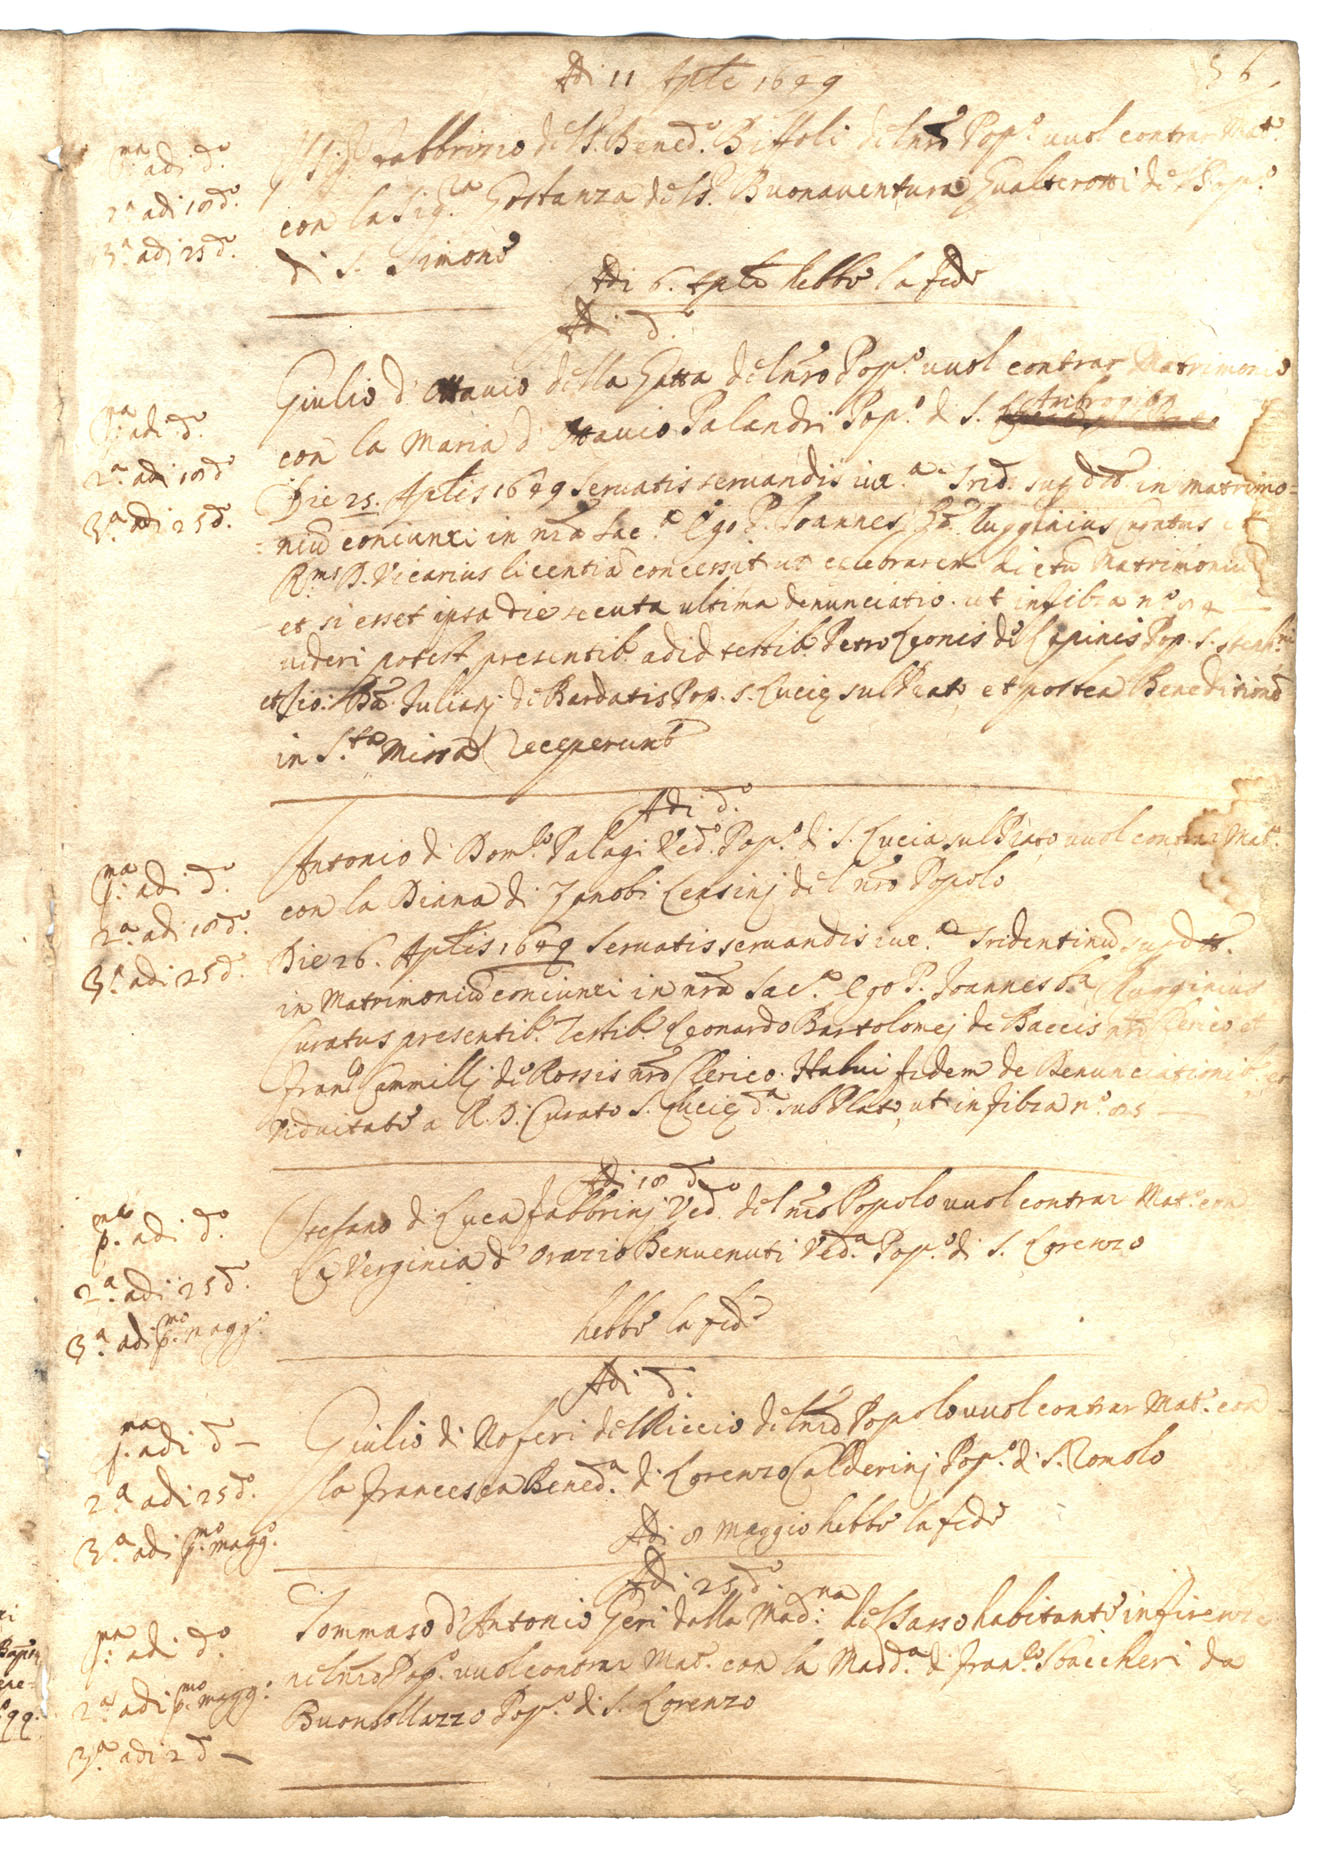 56
Adi 11 Aple 1649
p.ª adi d.º
2.ª adi 18 d.º
3.ª adi 25 d.º
Il Sig. Fabbrizio del S. Bened.º Biffoli del nro Pop.º vuol contrar Mat.º
con la Sig.ra Gostanza del S. Buonaventura Gualterotti del Pop.º
di S. Simone
Adi 6. Aple hebbe la fede
Adi d.º
p.ª adi d.º
2.ª adi 18 d.º
3.ª adi 25 d.º
Giulio d' Ottavio della Gatta del nro Pop.º vuol contrar Matrimonio
con la Maria d' Ottavio Palandri Pop.º di S. Ambrogio
Die 25. Aplis 1649 servatis servandis iux.ª Trid. supd.tos in matrimo=
niũ coniunxi in nrã Sac.ª Ego P. Joannes Bã Curatus et
R.mus D. Vicarius licentiã concessit ut celebrarem dictũ Matrimoniũ
et si esset ipsa die secuta ultima denunciatio. ut in filza n.º 84
videri potest presentib. adid testib. Petro Leonis de Lapinis Pop. S. Steph.ni
et Jo: Bã. Juliani de Bardatis Pop. S. Lucię sul Prato et postea Benedictionẽ
in S.ta Missa receperunt
Adi d.º
p.ma adi d.º
2.ª adi 18 d.º
3.ª adi 25 d.º
Antonio di Dom.co Palagi Ved.º Pop.º di S. Lucia sul Prato vuol contrar Mat.º
con la Diana di Zanobi Censinj del nro Popolo
Die 26. Aplis 1649 servatis servandis iux.ª Tridentinũ supd.tos
in Matrimoniũ coniunxi in nrã Sac.ª Ego P. Joannes Bã
Curatus presentib. Testib. Leonardo Bartolomej de Baccis nrõ Clerico et
Fran.co Cammillj de Rossis nrõ Clerico. Habui fidem de Denunciationib. et
Viduitate a R. D. Curato S. Lucię d.ª sul Prato, ut in filza n.º 85
Adi 18 d.º
p.ma adi d.º
2.ª adi 25 d.º
3.ª adi p.mo magg.º
Stefano di Luca Fabbrinj Ved.º del nro Popolo vuol contrar Mat.º con
la Verginia d' Orazio Benvenuti Ved.ª Pop.º di S. Lorenzo
hebbe la fede
Adi d.º
p.ma adi d.º
2.ª adi 25 d.º
3.ª adi p.mo magg.º
Giulio di Noferi del Riccio del nro Popolo vuol contrar Mat.º con
la Francesca Bened.ª di Lorenzo Calderinj Pop.º di S. Romolo
Adi 8 Maggio hebbe la fede
Adi 25 d.º
p.ma adi d.º
2.ª adi p.mo magg.º
3.ª adi 2 d.º
Tommaso d' Antonio Geri dalla Mad.na del Sasso habitante in Firenze
nel nro Pop.º vuol contrar Mat.º con la Madd.ª di Fran.co Saccheri da
Buonsollazzo Pop.º di S. Lorenzo